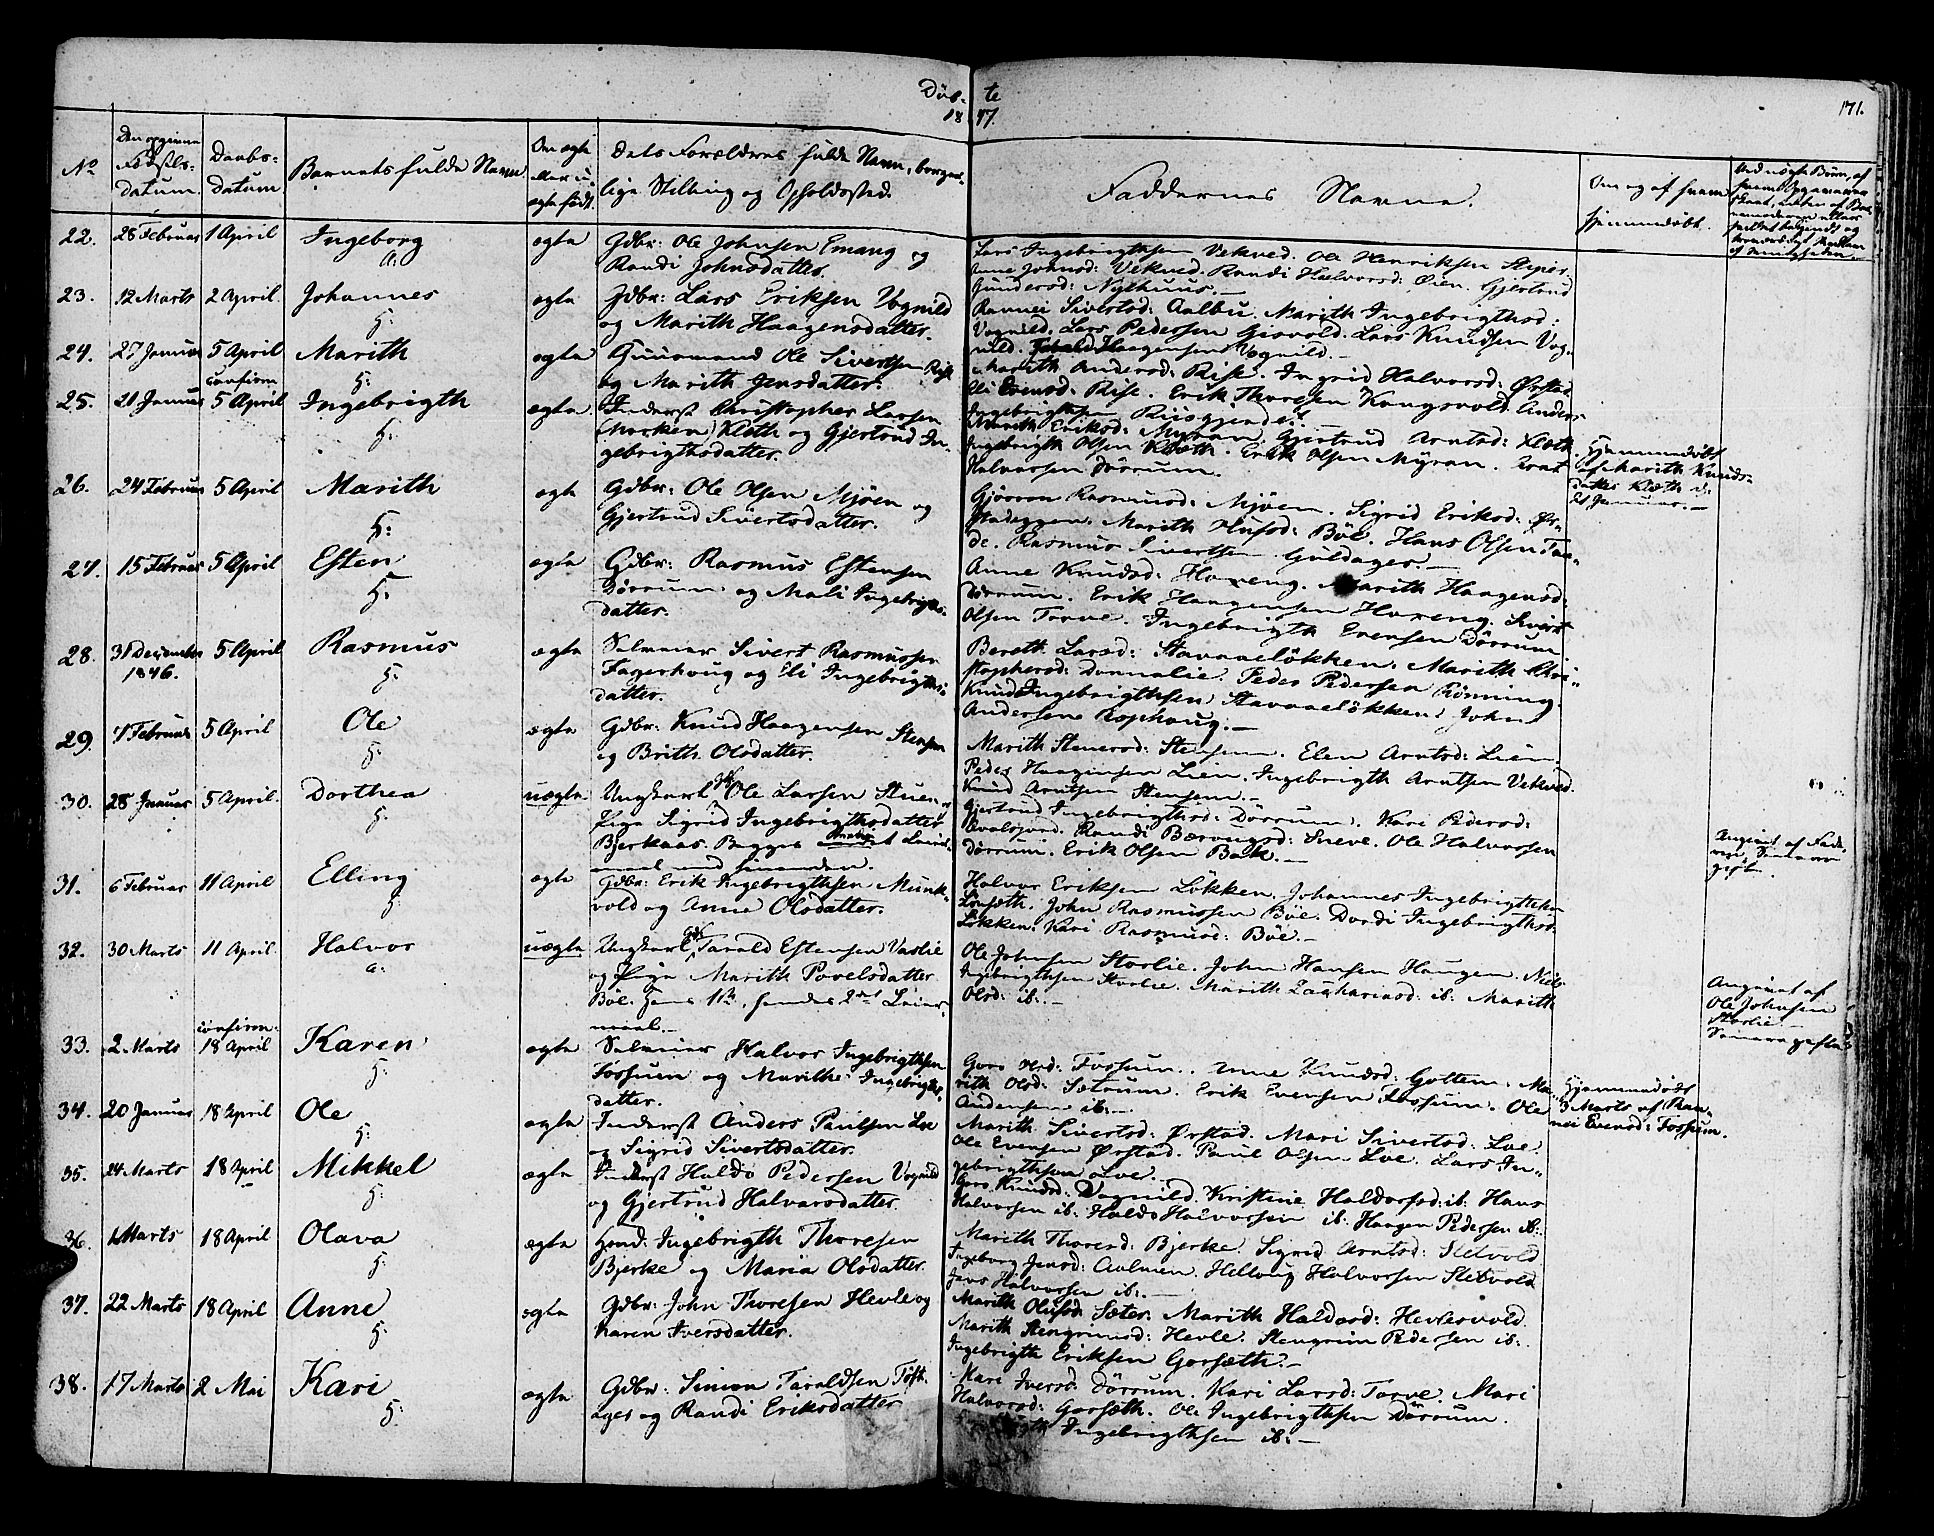 Døb- te
18 47.
171.
No
Den opgivne Fødsels-datum.
Daabs-datum
Barnets fulde Navn
Om ægte eller uægte født.
Dets Forældres fulde Navn, borger-
lige Stilling og Opholdssted.
Faddernes Navne.
Om og af hvem hjemmedøbt.
22. 28 Februar 1 April Ingeborg ægte Gdbr: Ole Johnsen Emaug og
a:
Randi Johnsdatter.
Lars Ingebrigthsen Vekved. Ole Henriksen
Anne Johnsd: Vekved. Randi Halvorsd: Øien. Gjertrud
Gundersd: Nyhuus.—
23. 12 Marts 2 April Johannes ægte Gdbr: Lars Eriksen Vognild
h:
og Marith Haagensdatter.
Rannei Sivertsd: Aalbu. Marith Ingebrigthsd:
Vognild. Lars Pedersen Gisvold. Lars Knudsen Vog-
nild. Haagensen Vognild.—
24. 27 Januar 5 April Marith ægte Huusmand Ole Sivertsen Rise
h:
og Marith Jensdatter.
Marith Andersd: Rise. Ingrid Halvorsd: Ørstad
Eli Evensd: Rise. Erik Thoresen Kongsvold. Anders
Ingebrigthsen Riisgjerdet.
25. 21 Januar confirm 5 April Ingebrigth ægte Inderst Christopher Larsen
h:
(Norken) Kleth og Gjertrud In-
gebrigthsdatter.
Marith Eriksd: Myran. Gjertrud Arntsd: Kleth.
Ingebrigth Olsen Kleth. Erik Olsen Myran. Arnt
Halvorsen Dørrum.
Hjemmedøbt
af Marith Knuds-
datter Kleth d:
21 Januar.—
26. 24 Februar 5 April Marith ægte Gdbr: Ole Olsen Mjøen og
h:
Gjertrud Sivertsdatter.
Gjøran Rasmusd: Mjøen. Sigrid Eriksd: Ør-
stadeggen. Marith Olufsd: Böe. Hans Olsen Tor-
ve. Rasmus Sivertsen Guldager.—
27. 15 Februar 5 April Esten ægte Gdbr: Rasmus Estensen
h:
Dørrum og Mali Ingebrigths-
datter.
Anne Knudsd: Horeng. Marith Haagensd:
Dørrum. Erik Haagensen Horeng. Sivert
Olsen Torve. Ingebrigth Evensen Dørrum
28. 31 December 1846. 5 April Rasmus ægte Selveier Sivert Rasmussen
h:
Fagerhoug og Eli Ingebrigths-
datter.
Berett Larsd: Stavaaeløkken. Marith Chri-
stophersd: Donnalie. Peder Pedersen Rønning.
Knud Ingebrigthsen Stavaaeløkken. John
Andersene Rophaug.—
29. 7 Februar 5 April Ole ægte Gdbr: Knud Haagensen Stensen
h:
og Brith Olsdatter.
Marith Stenersd: Stensen. Elen Arntsd: Lien.
Peder Haagensen Lien. Ingebrigth Arntsen Vekved.
Knud Arntsen Stensen.—
30. 28 Januar 5 April Dorthea uægte Ungkarl Ole Larsen Stuen
h:
Pige Sigrid Ingebrigthsdatter
Bjerkaas. Begges andet Leier-
maal med hinanden.
Gjertrud Ingebrigthsd: Dørrum. Kari Pedersd:
Randi Bærengsd: Sneve. Ole Halvorsen
Dørrum. Erik Olsen Bak.—
Angivet af Fade-
ren.
31. 6 Februar 11 April Elling ægte Gdbr: Erik Ingebrigthsen Munk-
h:
vold og Anne Olsdatter.
Halvor Eriksen Løkken. Johannes Ingebrigthsen
Lønsæth. John Rasmussen Böe. Dordi Ingebrigthsd:
Løkken. Kari Rasmusd: Böe.—
32. 30 Marts 11 April Halvor uægte Ungkarl Tarald Estensen Vaslie
a:
og Pige Marith Povelsdatter
Böe. Hans 1ste, hendes 2det Leier-
maal.—
Ole Johnsen Storlie. John Hansen Haugen. Niels
Ingebrigthsen Storlie. Marith Zachariasd: ib: Marith
Olsd: ib:—
Angivet af
Ole Johnsen
Storlie.—
33. 2 Marts confirm: 18 April Karen ægte Selveier Halvor Ingebrigthsen
h:
Fossum og Marithe Ingebrigths-
datter.
Goro Olsd: Fossum. Anne Knudsd: Gottem. Ma-
rith Olsd: Sætrum. Erik Evensen Fossum. Ole
Andersen ib:—
Hjemmedøbt
3 Marts af Ran-
nei Evensd: Fossum.
34. 20 Januar 18 April Ole ægte Inderst Anders Paulsen Loe
h:
og Sigrid Sivertsdatter.
Marith Sivertsd: Ørstad. Mari Sivertsd: Loe.
Ole Evensen Ørstad. Paul Olsen Loe. Lars In-
gebrigthsen Loe.
35. 24 Marts 18 April Mikkel ægte Inderst Haldo Pedersen Vognild
h:
og Gjertrud Halvorsdatter.
Goro Knudsd: Vognild. Kristine Haldorsd: ib: Hans
Halvorsen ib: Haldo Halvorsen ib: Haagen Pedersen ib:
36. 1 Marts 18 April Olava ægte Huusd: Ingebrigth Thoresen
h:
Bjerke og Maria Olsdatter.
Marith Thoresd: Bjerke. Sigrid Arntsd: Sletvold
Ingeborg Jensd: Aalmen. Hellvug Halvorsen Sletvold
Jens Halvorsen ib:—
37. 22 Marts 18 April Anne ægte Gdbr: John Thoresen Hevle og
h:
Karen Iversdatter.
Marith Olufsd: Sæter. Marith Haldosd: Hevlesvold.
Marith Stengrimsd: Hevle. Stengrim Pedersen ib:
Ingebrigth Eriksen Gorsæth.—
38. 17 Marts 2 Mai Kari ægte Gdbr: Simen Taraldsen Tøft-
h:
ager og Randi Eriksdatter
Kari Iversd: Dørrum. Kari Larsd: Torve. Mari
Halvorsd: Gorsæth. Ole Ingebrigthsen Dørrum.
Ingebrigthsen ib:—